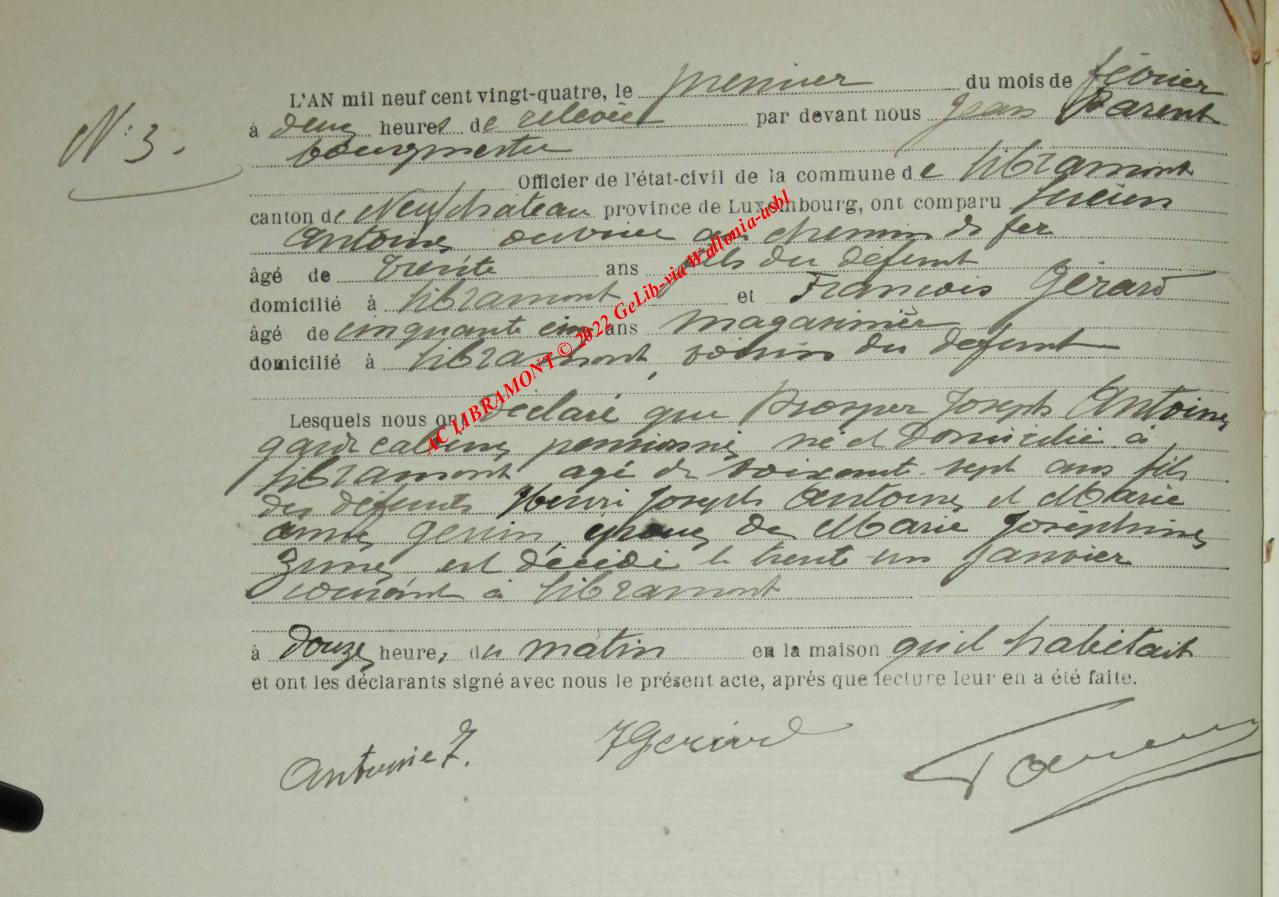 N° 3.
L'AN mil neuf cent vingt-quatre, le premier du mois de février
à deux heures de relevée par devant nous Jean Parent
bourgmestre
Officier de l'état-civil de la commune de Libramont
canton de Neufchateau province de Luxembourg, ont comparu Lucien
Antoine ouvrier au chemin de fer
âgé de trente ans fils du défunt
domicilié à Libramont et François Gérard
âgé de cinquante cinq ans magasinier
domicilié à Libramont, voisin du défunt
Lesquels nous ont déclaré que Prosper Joseph Antoine
garde pensionné, né et domicilié à
Libramont agé de soixante sept ans fils
des défunts Henri Joseph Antoine et Marie
anne époux de Marie Joséphine
est décédé le trente un janvier
courant à Libramont
à douze heures du matin en la maison qu'il habitait
et ont les déclarants signé avec nous le présent acte, après que lecture leur en a été faite.
Antoine FGérard Parent
AC LIBRAMONT © 2022 GeLib-via Wallonia-asbl